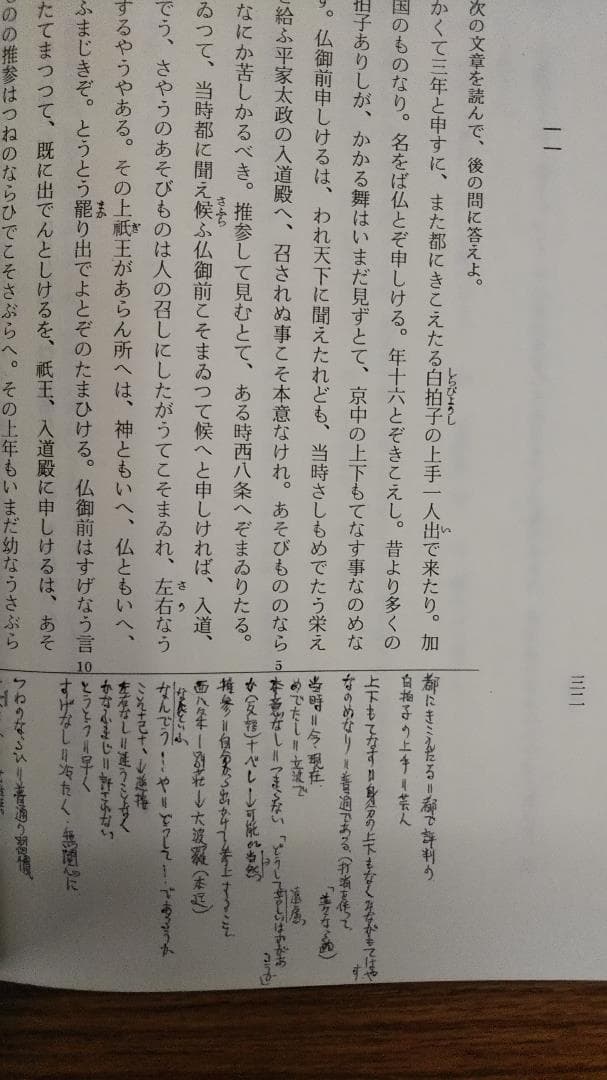 二
次の文章を読んで、後の問に答えよ。
かくて三年と申すに、また都にきこえたる白拍子の上手一人出で来たり。加
しらびょうし
い
国のものなり。名をば仏とぞ申しける。年十六とぞきこえし。昔より多くの
拍子ありしが、かかる舞はいまだ見ずとて、京中の上下もてなす事なのめな
す。仏御前申しけるは、われ天下に聞えたれども、当時さしもめでたう栄え
給ふ平家太政の入道殿へ、召されぬ事こそ本意なけれ。あそびもののなら
5
なにか苦しかるべき。推参して見むとて、ある時西八条へぞまゐりたる。
ゐつて、当時都に聞え候ふ仏御前こそまゐつて候へと申しければ、入道、
さぶら
でう、さやうのあそびものは人の召しにしたがうてこそまゐれ、左右なう
さう
するやうやある。その上祇王があらん所へは、神ともいへ、仏ともいへ、
ぎ
ふまじきぞ。とうとう罷り出でよとぞのたまひける。仏御前はすげなう言
まか
10
たてまつつて、既に出でんとしけるを、祇王、入道殿に申しけるは、あそ
ものの推参はつねのならひでこそさぶらへ。その上年もいまだ幼なうさぶら
三二
都にきこえたる＝都で評判の
白拍子の上手＝芸人
上下もてなす＝身分の上下もなくみながもてはやす
なのめなり＝普通である。(打消を伴って
当時＝今、現在
めでたし＝立派で
本意なし＝つまらない
か(反語)＋べし→可能or当然
推参＝自分から出かけて参上すること
西八条―別荘→六波羅(本邸)
なんでう…や＝どうして…であろうか
こそ＋已＋、→逆接
左右なし＝迷うことなく
かなふまじ＝許さない
とうとう＝早く
すげなし＝冷たく、無関心に
つねのならひ＝普通の習慣